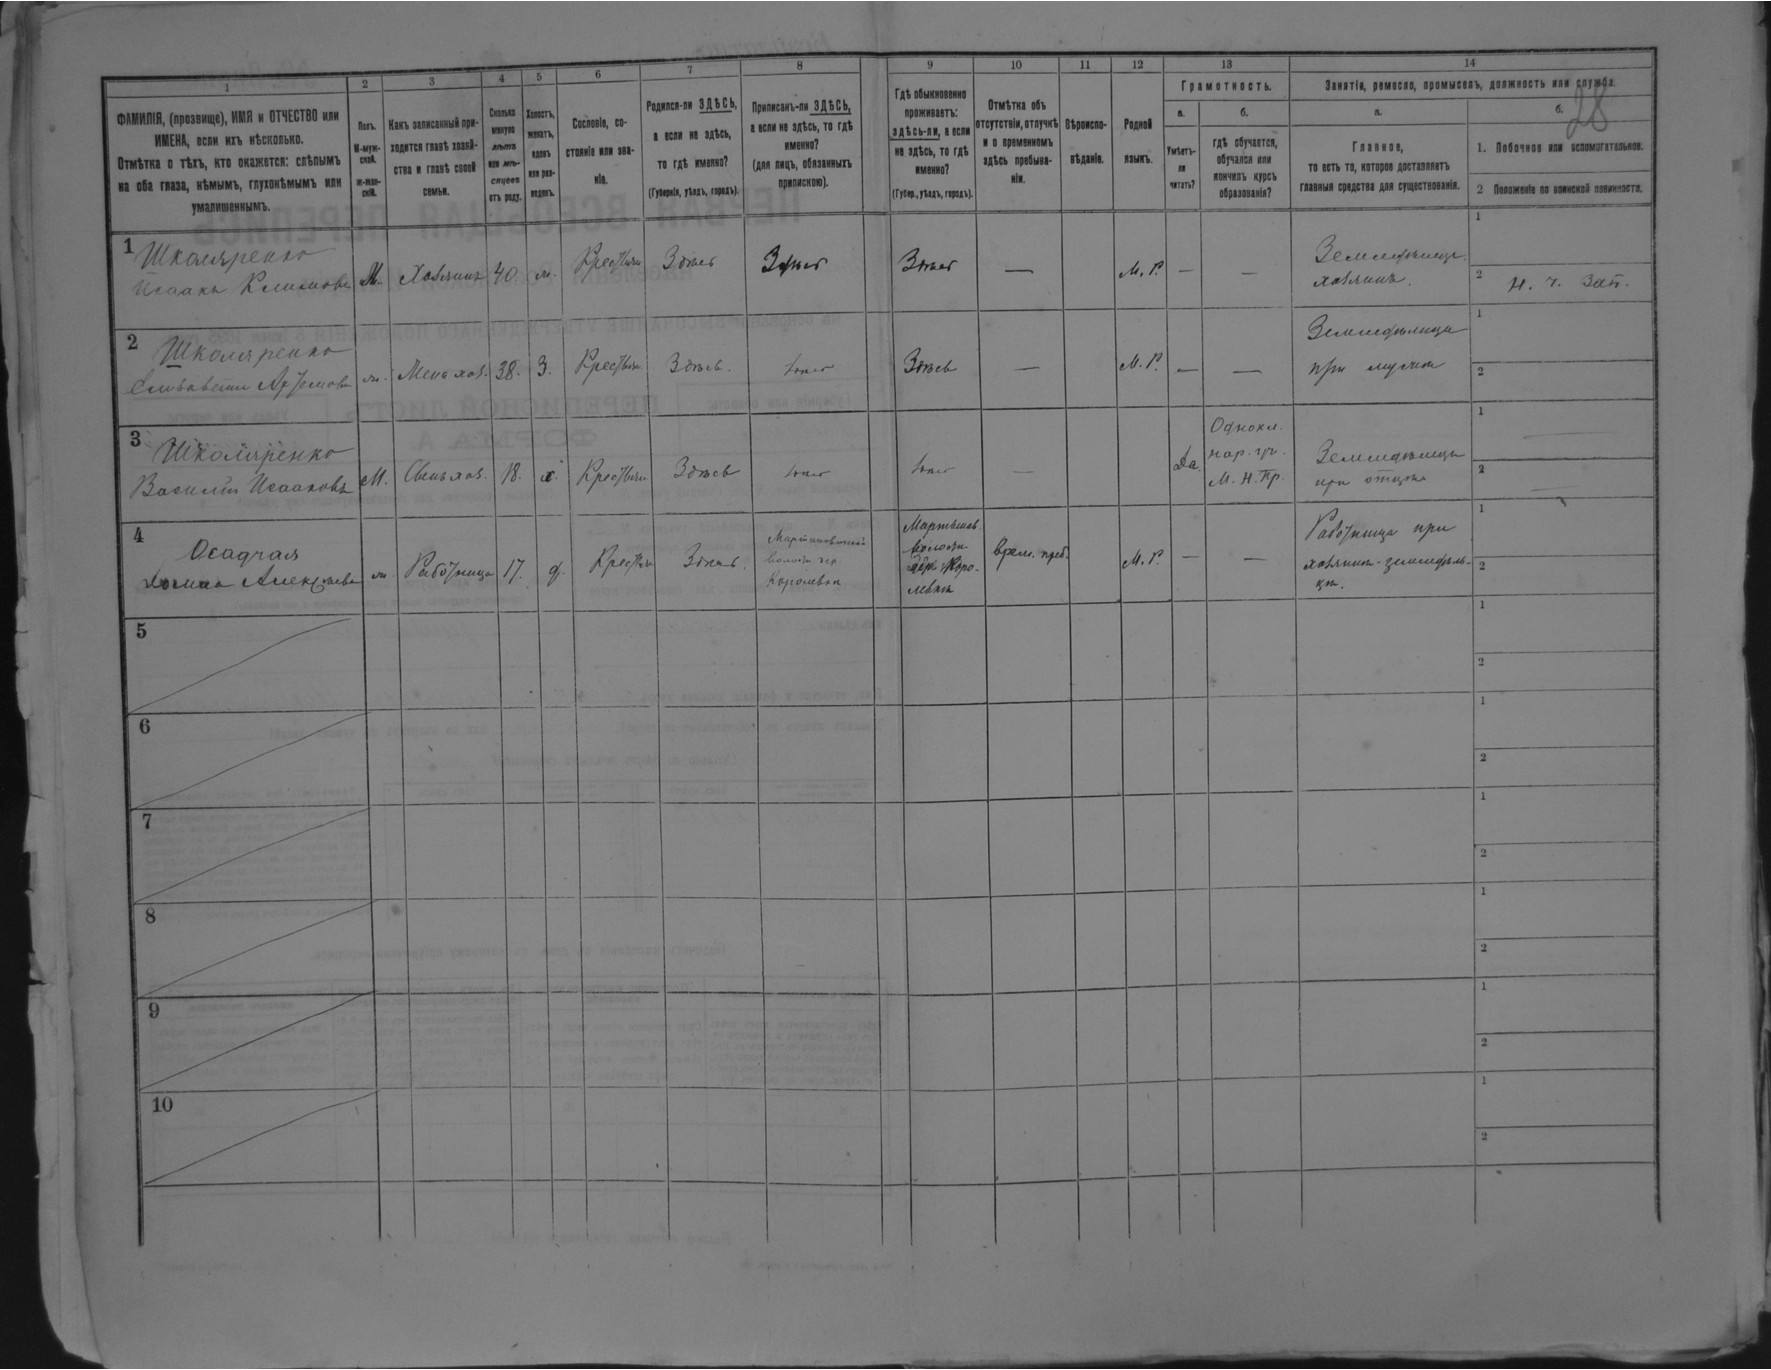 28
1 2 3 4 5 6 7 8 9 10 11 12 13 14
ФАМИЛІЯ, (прозвище), ИМЯ и ОТЧЕСТВО или
ИМЕНА, если ихъ нѣсколько.
Отмѣтка о тѣхъ, кто окажется: слѣпымъ
на оба глаза, нѣмымъ, глухонѣмымъ или
умалишеннымъ.
Полъ.
М-муж-
ской.
ж-жен-
скій.
Какъ записанный при-
ходится главѣ хозяй-
ства и главѣ своей
семьи.
Сколько
минуло
лѣтъ
или мѣ-
сяцевъ
отъ роду.
Холостъ,
женатъ,
вдовъ
или раз-
веденъ.
Сословіе, со-
стояніе или зва-
ніе.
Родился-ли ЗДѢСЬ,
а если не здѣсь,
то гдѣ именно?
(Губернія, уѣздъ, городъ).
Приписанъ-ли ЗДѢСЬ,
а если не здѣсь, то гдѣ
именно?
(для лицъ, обязанныхъ
припискою).
Гдѣ обыкновенно
проживаетъ:
здѣсь-ли, а если
не здѣсь, то гдѣ
именно?
(Губер., уѣздъ, городъ).
Отмѣтка объ
отсутствіи, отлучкѣ
и о временномъ
здѣсь пребыва-
ніи.
Вѣроиспо-
вѣданіе.
Родной
языкъ.
Грамотность.
а.
Умѣетъ-
ли
читать?
б.
гдѣ обучается,
обучался или
кончилъ курсъ
образованія?
Занятія, ремесло, промыселъ, должность или служба.
а.
Главное,
то есть то, которое доставляетъ
главныя средства для существованія.
б.
1. Побочное или вспомогательное.
2 Положеніе по воинской повинности.
1
Школяренко
Исаакъ Климовъ
М.
Хозяинъ
40
ж.
Крестьян
Здѣсь
Здѣсь
Здѣсь
—
М. Р.
—
—
Земледѣлецъ
хозяинъ.
1
2 Н. ч. Зап.
2
Школяренко
Елизавета Артемова
ж.
Жена хоз.
38.
З.
Крестьян
Здѣсь.
тоже
Здѣсь
—
М. Р.
—
—
Земледѣлица
при мужѣ
1
2
3
Школяренко
Василій Исааковъ
М.
Сынъ хоз.
18.
х.
Крестьян
Здѣсь
тоже
тоже
—
Да.
Однокл.
нар. уч.
М. Н. Пр.
Земледѣлецъ
при отцѣ
1
2
4
Осадчая
Алексѣева
ж.
Работница
17.
д.
Крестьян
Здѣсь.
Мартыновской
волости дер.
Королевка
Мартынов.
волости
дер. Коро-
левка
Врем. преб.
М. Р.
—
—
Работница при
хозяинѣ-земледѣль-
цѣ.
1
2
5
1
2
6
1
2
7
1
2
8
1
2
9
1
2
10
1
2